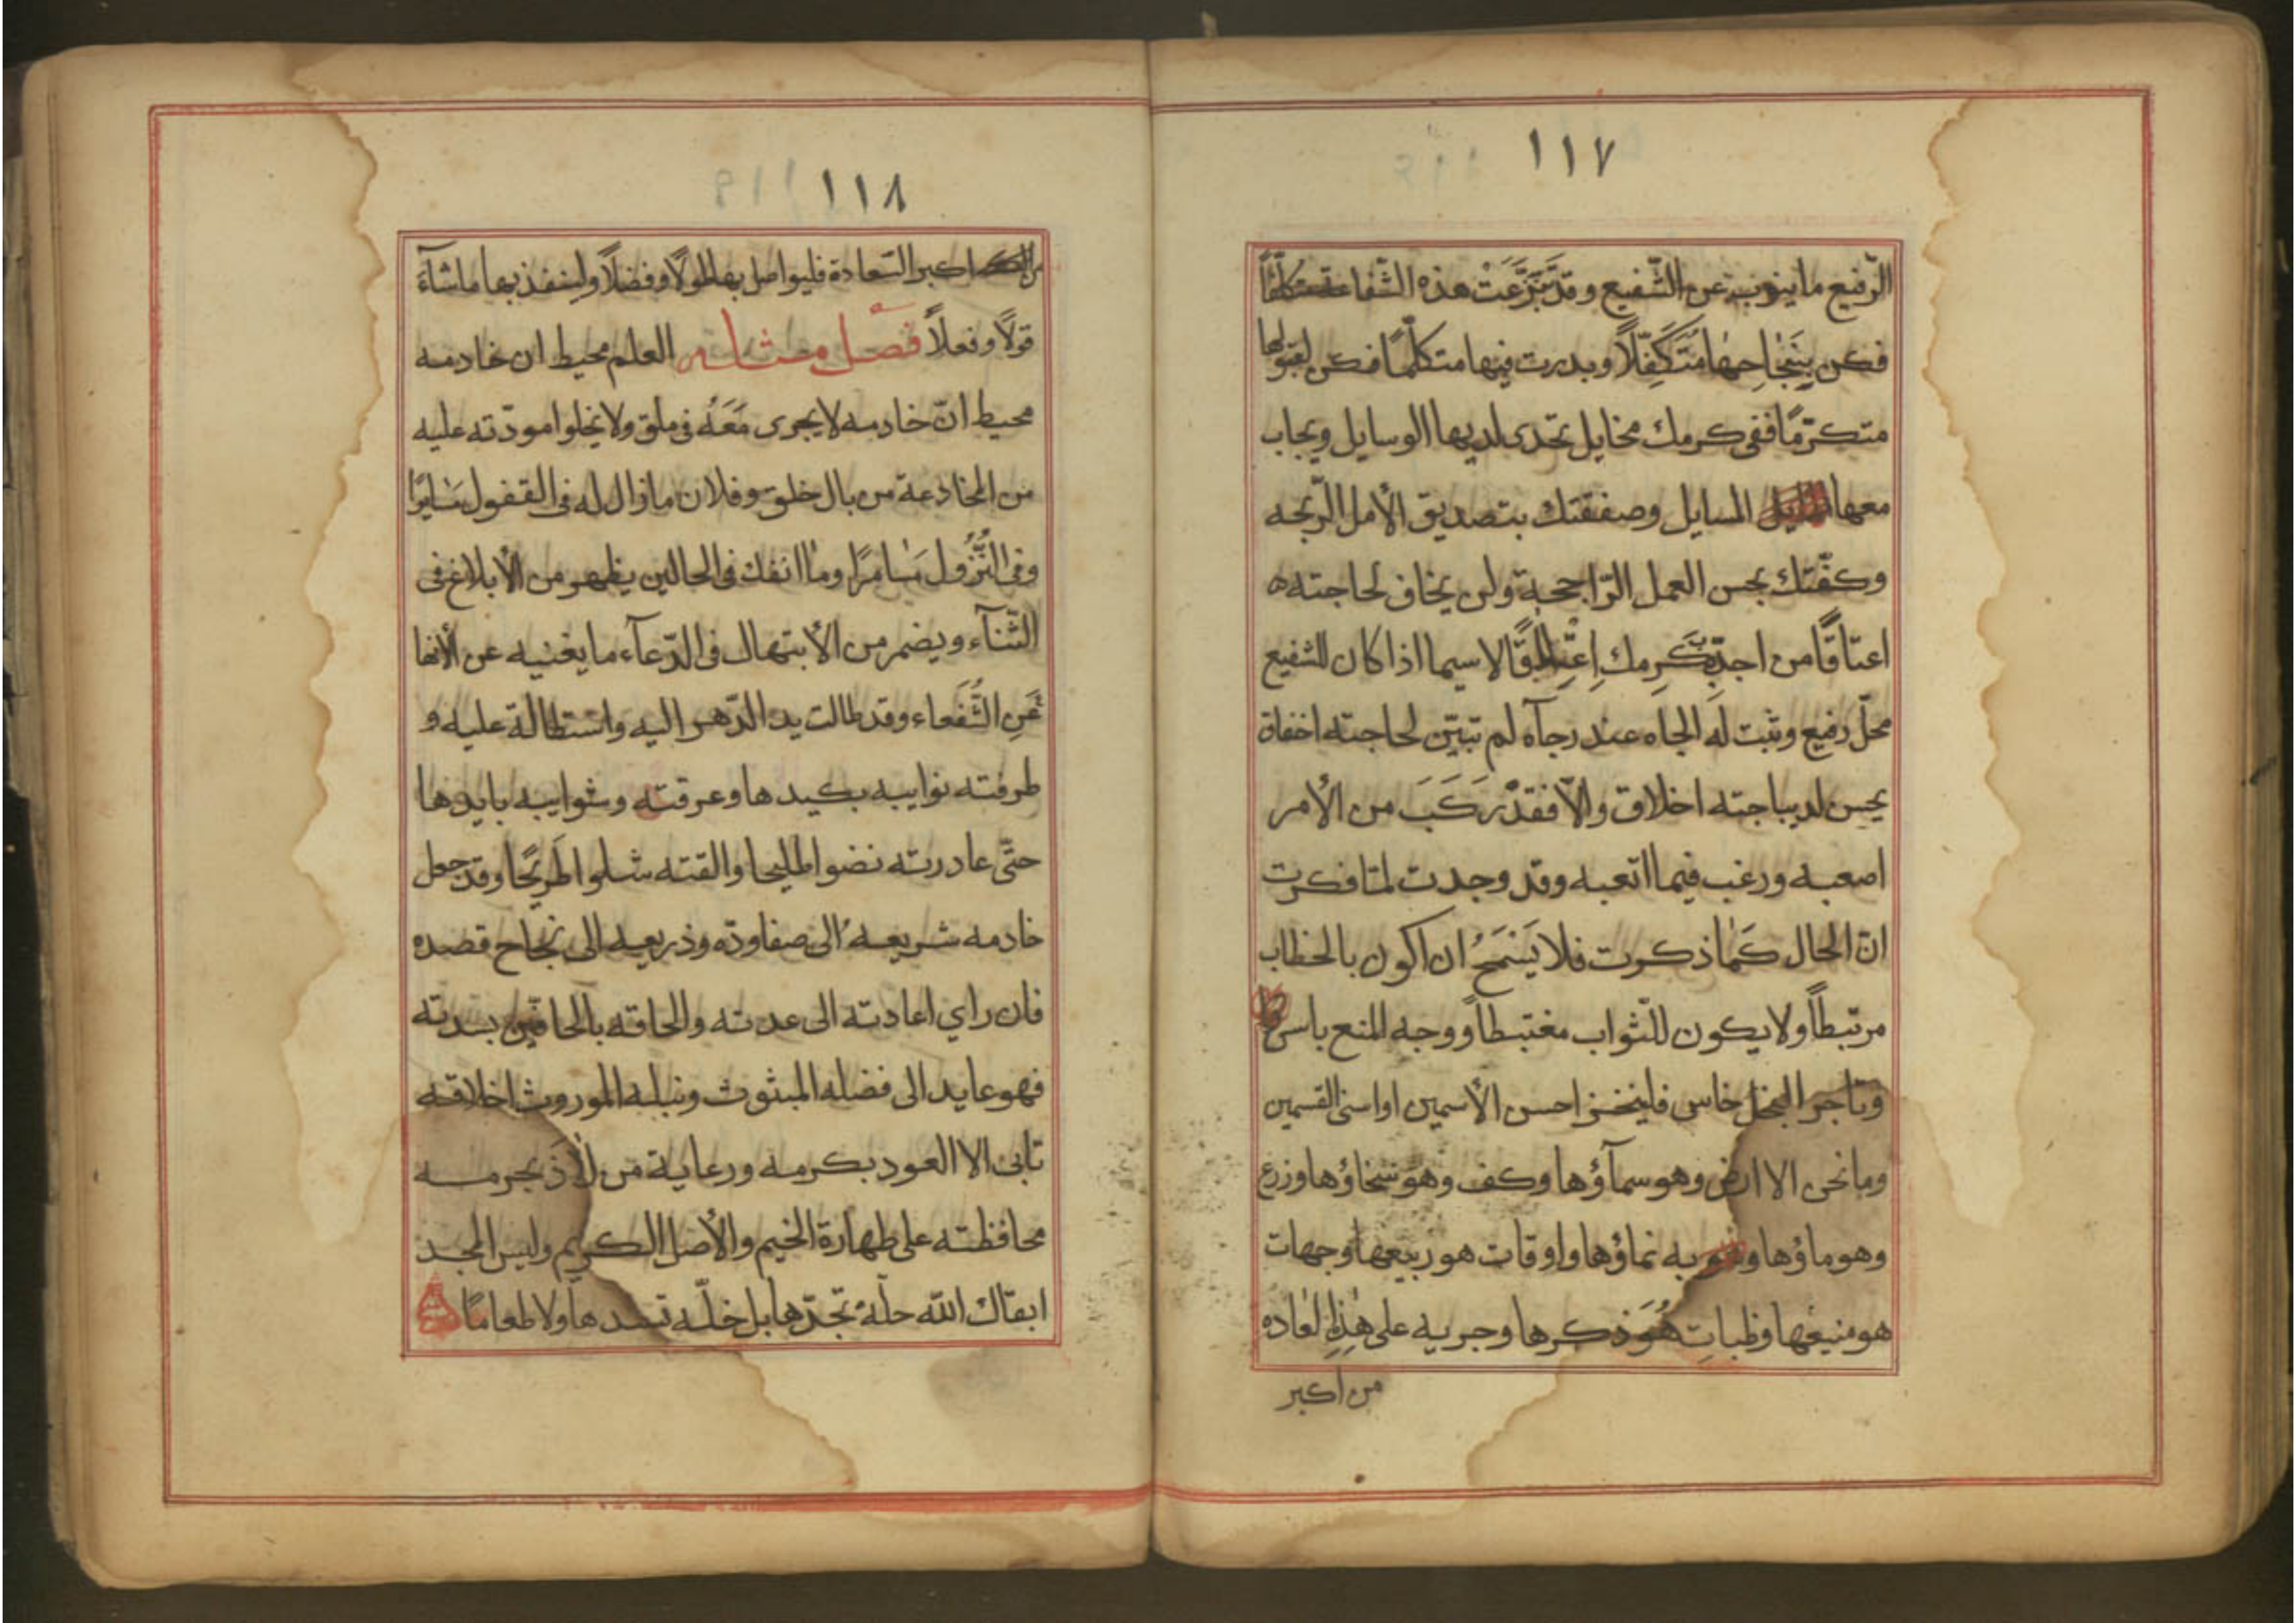 ١١٧
الرّفيع ما ينوب عن الشّفيع وقد تَبَرَّعَتْ هذه الشّفاعة متكلّفًا
فكن بِنَجٰاحِهٰا مُتَكَفِّلًا وبدرت فيها متكلّمًا فكن لقبولها
متكرّمًا ففى كرمك مخايل تجدى لديها الوسايل ويجاب
معها المسايل وصفقتك بتصديق الأمل الرّبحه
وكفّتك بحسن العمل الرّاجحة ولن يخاف لحاجته
اعتاقًا من اجدّ بكَرِمك لا سيما اذا كان للشفيع
محلّ رفيع وثبت لَه الجاه عند رجآه لم تبيّن لحاجته اخفاق
يحسن لديباجته اخلاق والّا فقدْ رَكَبَ من الأمر
اصعبه ورغب فيما اتعبه وقد وجدت لمّا فكرت
انّ الحال كَمٰا ذكرت فلا يَسْمَحُ ان اكون بالخطاب
مرتبطاً ولا يكون للثّواب مغتبطاً ووجه المنع باسر
وتاجر البخل خاسر فليختر احسن الأسمين او اسنى القسمين
وما نحن الا ارض وهو سمآؤها وكف وهو سخاؤها وزرع
وهو ماؤها وهو به نماؤها واوقات هو ربيعها وجهات
هو منيعها وظبات هُوَ ذكرها وجريه على هٰذِهِ لعاده
من اكبر
١١٨
من اكبر السّعادة فليواصل بها طولًا وفضلًا ولينفذ بها ما شآءَ
قولًا وفعلاً فصل مثله العلم محيط ان خادمه
محيط انّ خادمه لا يجرى مَعَهُ فى ملق ولا يخلوا مودّته عليه
من المخادعة من بال خلق وفلان ما زال له فى القفول سٰايرًا
وفى النُّزُول سٰامرًا ومٰا انفك فى الحالين يظهر من الأبلاغ فى
الثّنآء ويضمر من الأبتهال فى الدّعآء ما يغنيه عن الأنها
عَنِ الشُّفَعاء وقد طالت يد الدّهر اليه واستطالة عليه و
طرفته نوايبه بكيدها وعرقته وشوايبه بايدها
حتّى عادرته نضوا طليحا والقته شلوا طريحًا وقد جعل
خادمه شريعهُ الى صفاودّه وذريعه الى نجاح قصده
فان راي اعادته الى عدته والحاقه بالحافّين بسدته
فهو عايد الى فضله المبثوث ونبله الموروث اخلاقه
تابى الا العود بكرمه ورعاية من لاذَ بحرمه
محافظته على طهارة الخيم والأصل الكريم وليس المجد
ابقاك الله حلّة تجدّها بل خلّه تسدها ولا طعامًا